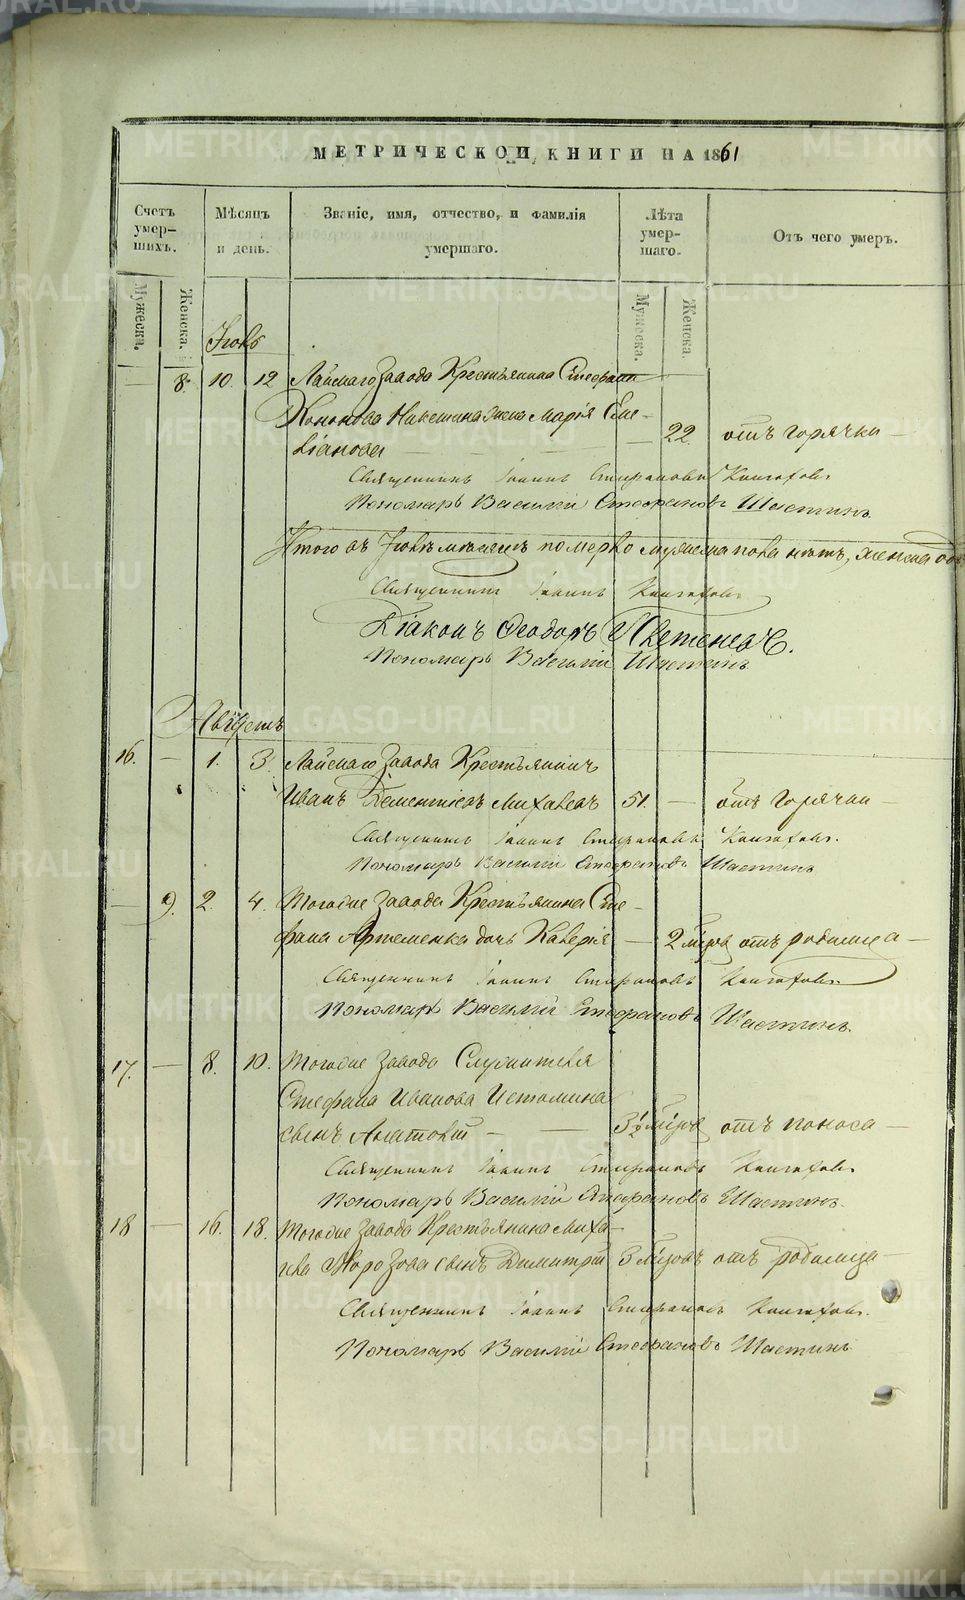 МЕТРИЧЕСКОЙ КНИГИ НА 1861
Счетъ умер-шихъ.
Мѣсяцъ и день.
Званіе, имя, отчество, и фамилія умершаго.
Лѣта умер-шаго.
Отъ чего умеръ.
Мужеска. Женска. Мужеска. Женска.
— 8. 10. 12 Лайскаго Завода Крестьянина Стефана
Кононова Никетина жена Марія Еме-
ліанова — 22 отъ горячки —
Священникъ Іоаннъ Стефановъ
Пономарь Василій Стефановъ Шастинъ.
Итого въ мѣсяцѣ померло мужеска пола нѣтъ, женска
Священникъ Іоаннъ
Діаконъ Феодоръ
Пономарь Василій Шастинъ
Августъ
16. — 1. 3. Лайскаго Завода Крестьянинъ
Иванъ Дементіевъ Михалевъ 51. — отъ горячки —
Священникъ Іоаннъ Стефановъ
Пономарь Василій Стефановъ Шастинъ
— 9. 2. 4. Тогоже Завода Крестьянина Сте-
фана Артеменка дочь — 2 отъ родимца —
Священникъ Іоаннъ Стефановъ
Пономарь Василій Стефановъ Шастинъ.
17. — 8. 10. Тогоже Завода Служителя
Стефана Иванова Истомина
сынъ Анатолій — 3½ отъ поноса —
Священникъ Іоаннъ Стефановъ
Пономарь Василій Стефановъ Шастинъ.
18 — 16. 18. Тогоже Завода Крестьянина Миха-
ила Морозова сынъ Димитрій 3 отъ родимца —
Священникъ Іоаннъ Стефановъ
Пономарь Василій Стефановъ Шастинъ
METRIKI.GASO-URAL.RU